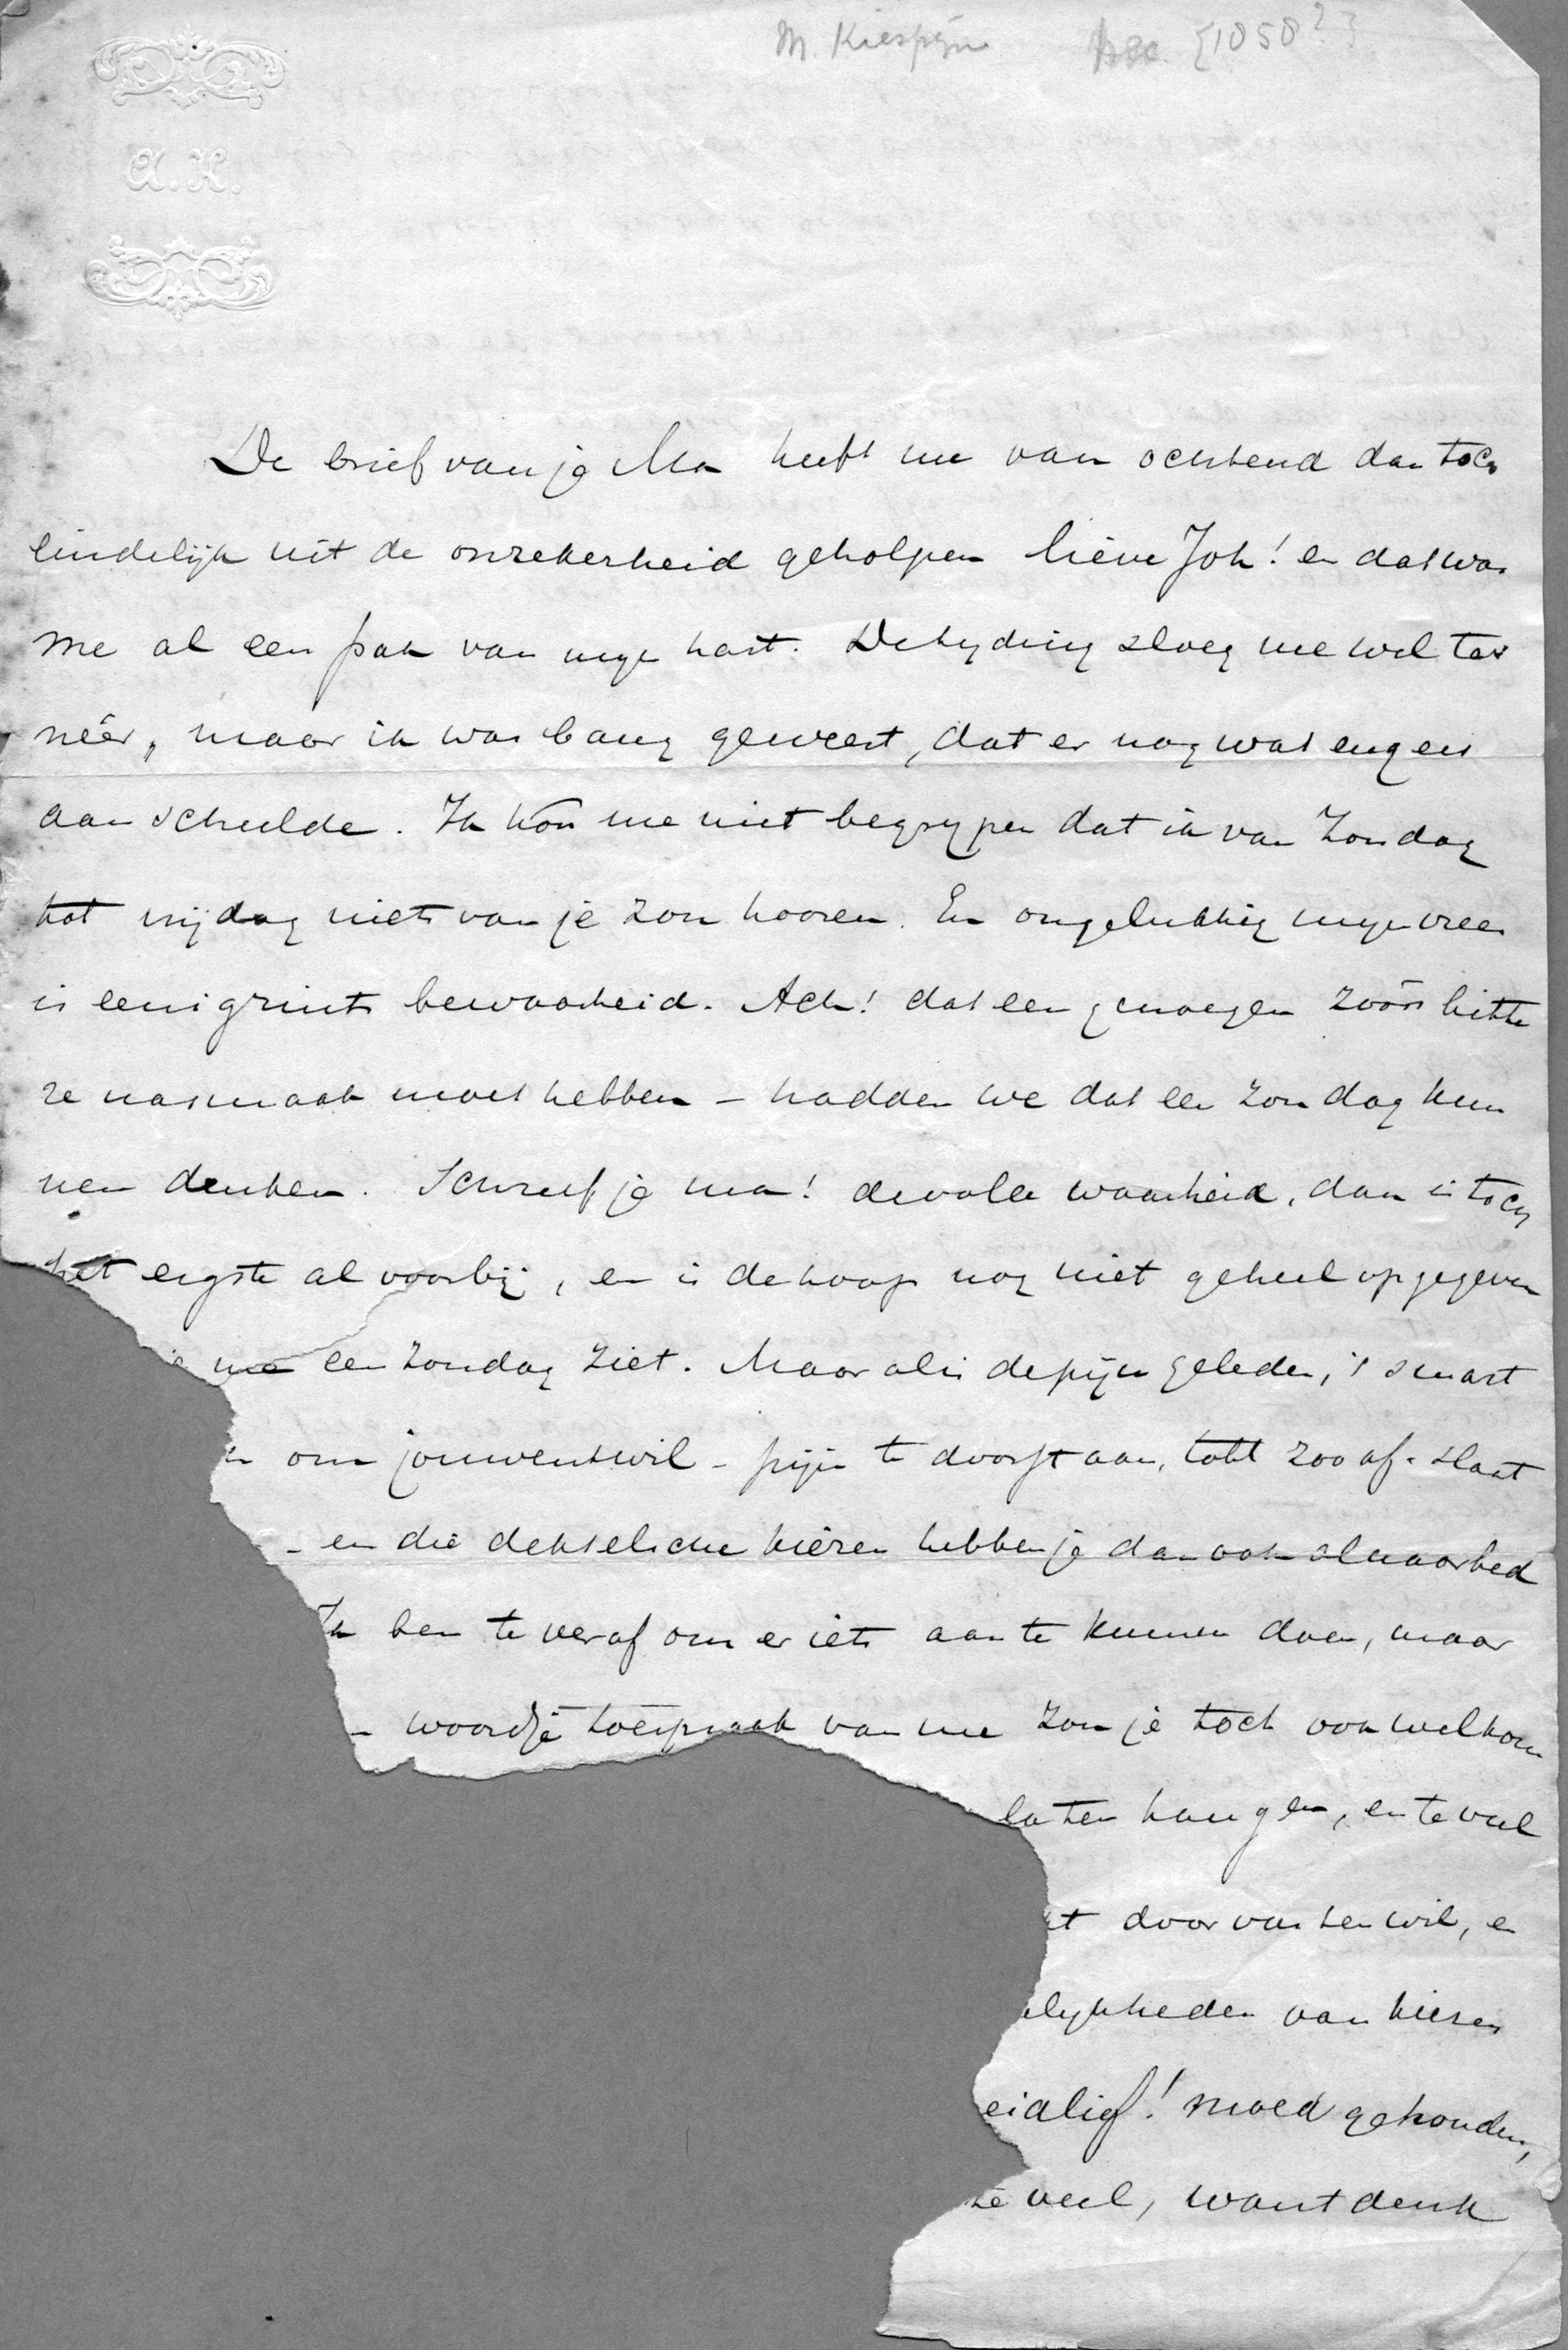 M. Kiespijn Dec. [1858?]
A.K.
De brief van je Ma heeft me van ochtend dan toch
eindelijk uit de onzekerheid geholpen lieve Joh! en dat was
me al een pak van mijn hart. De tijding sloeg me wel ter
neêr, maar ik was bang geweest, dat er nog wat ergers
aan scheelde. Ik kon me niet begrypen dat ik van Zondag
tot vrijdag niets van je zou hooren. En ongelukkig mijn vrees
is eenigzints bewaarheid. Ach! dat een genoegen zóó'n bitte
re nasmaak moest hebben – hadden we dat een Zondag kun
nen denken. Schreef je ma! de volle waarheid, dan is toch
het ergste al voorbij, en is de hoop nog niet geheel opgegeven
je me een zondag ziet. Maar al is de pijn geleden, 't smart
om jouwentwil – pijn te doorstaan, tobt zoo af. slaat
– en die dekselsche kiezen hebben je dan ook al naar bed
Ik ben te ver af om er iets aan te kunnen doen, maar
– woordje toespraak van me zou je toch ook welkom
laten hangen, en te veel
door vasten wil, en
lykheden van kiezen
eidlief! moed gehouden,
te veel, want denk